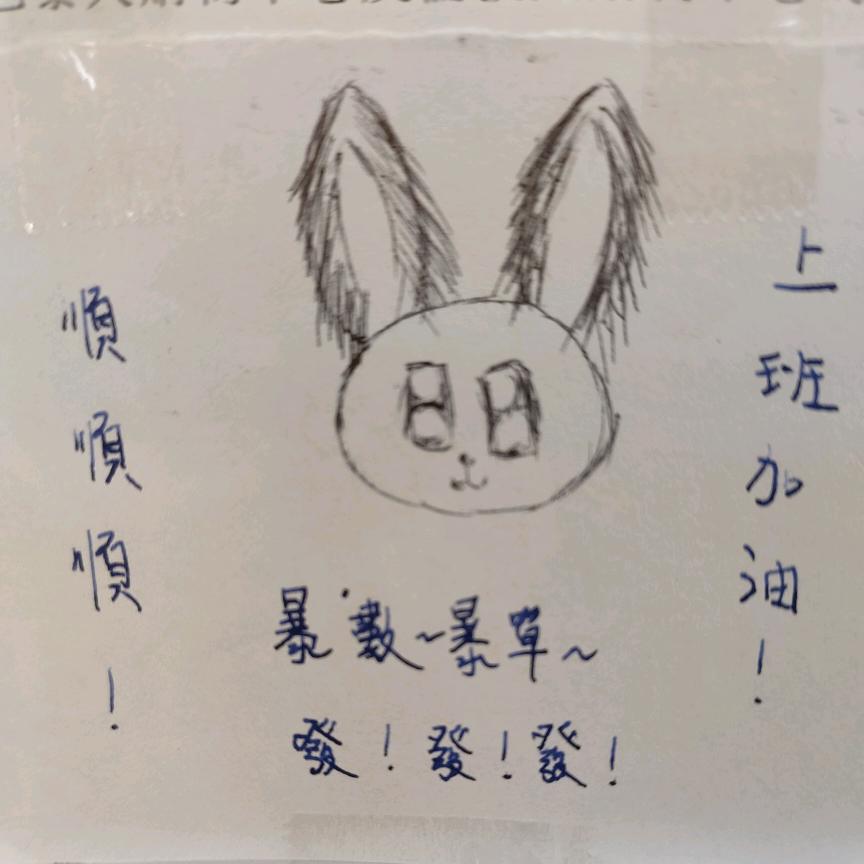 上班加油！
順順順！
暴數~暴單~
發！發！發！